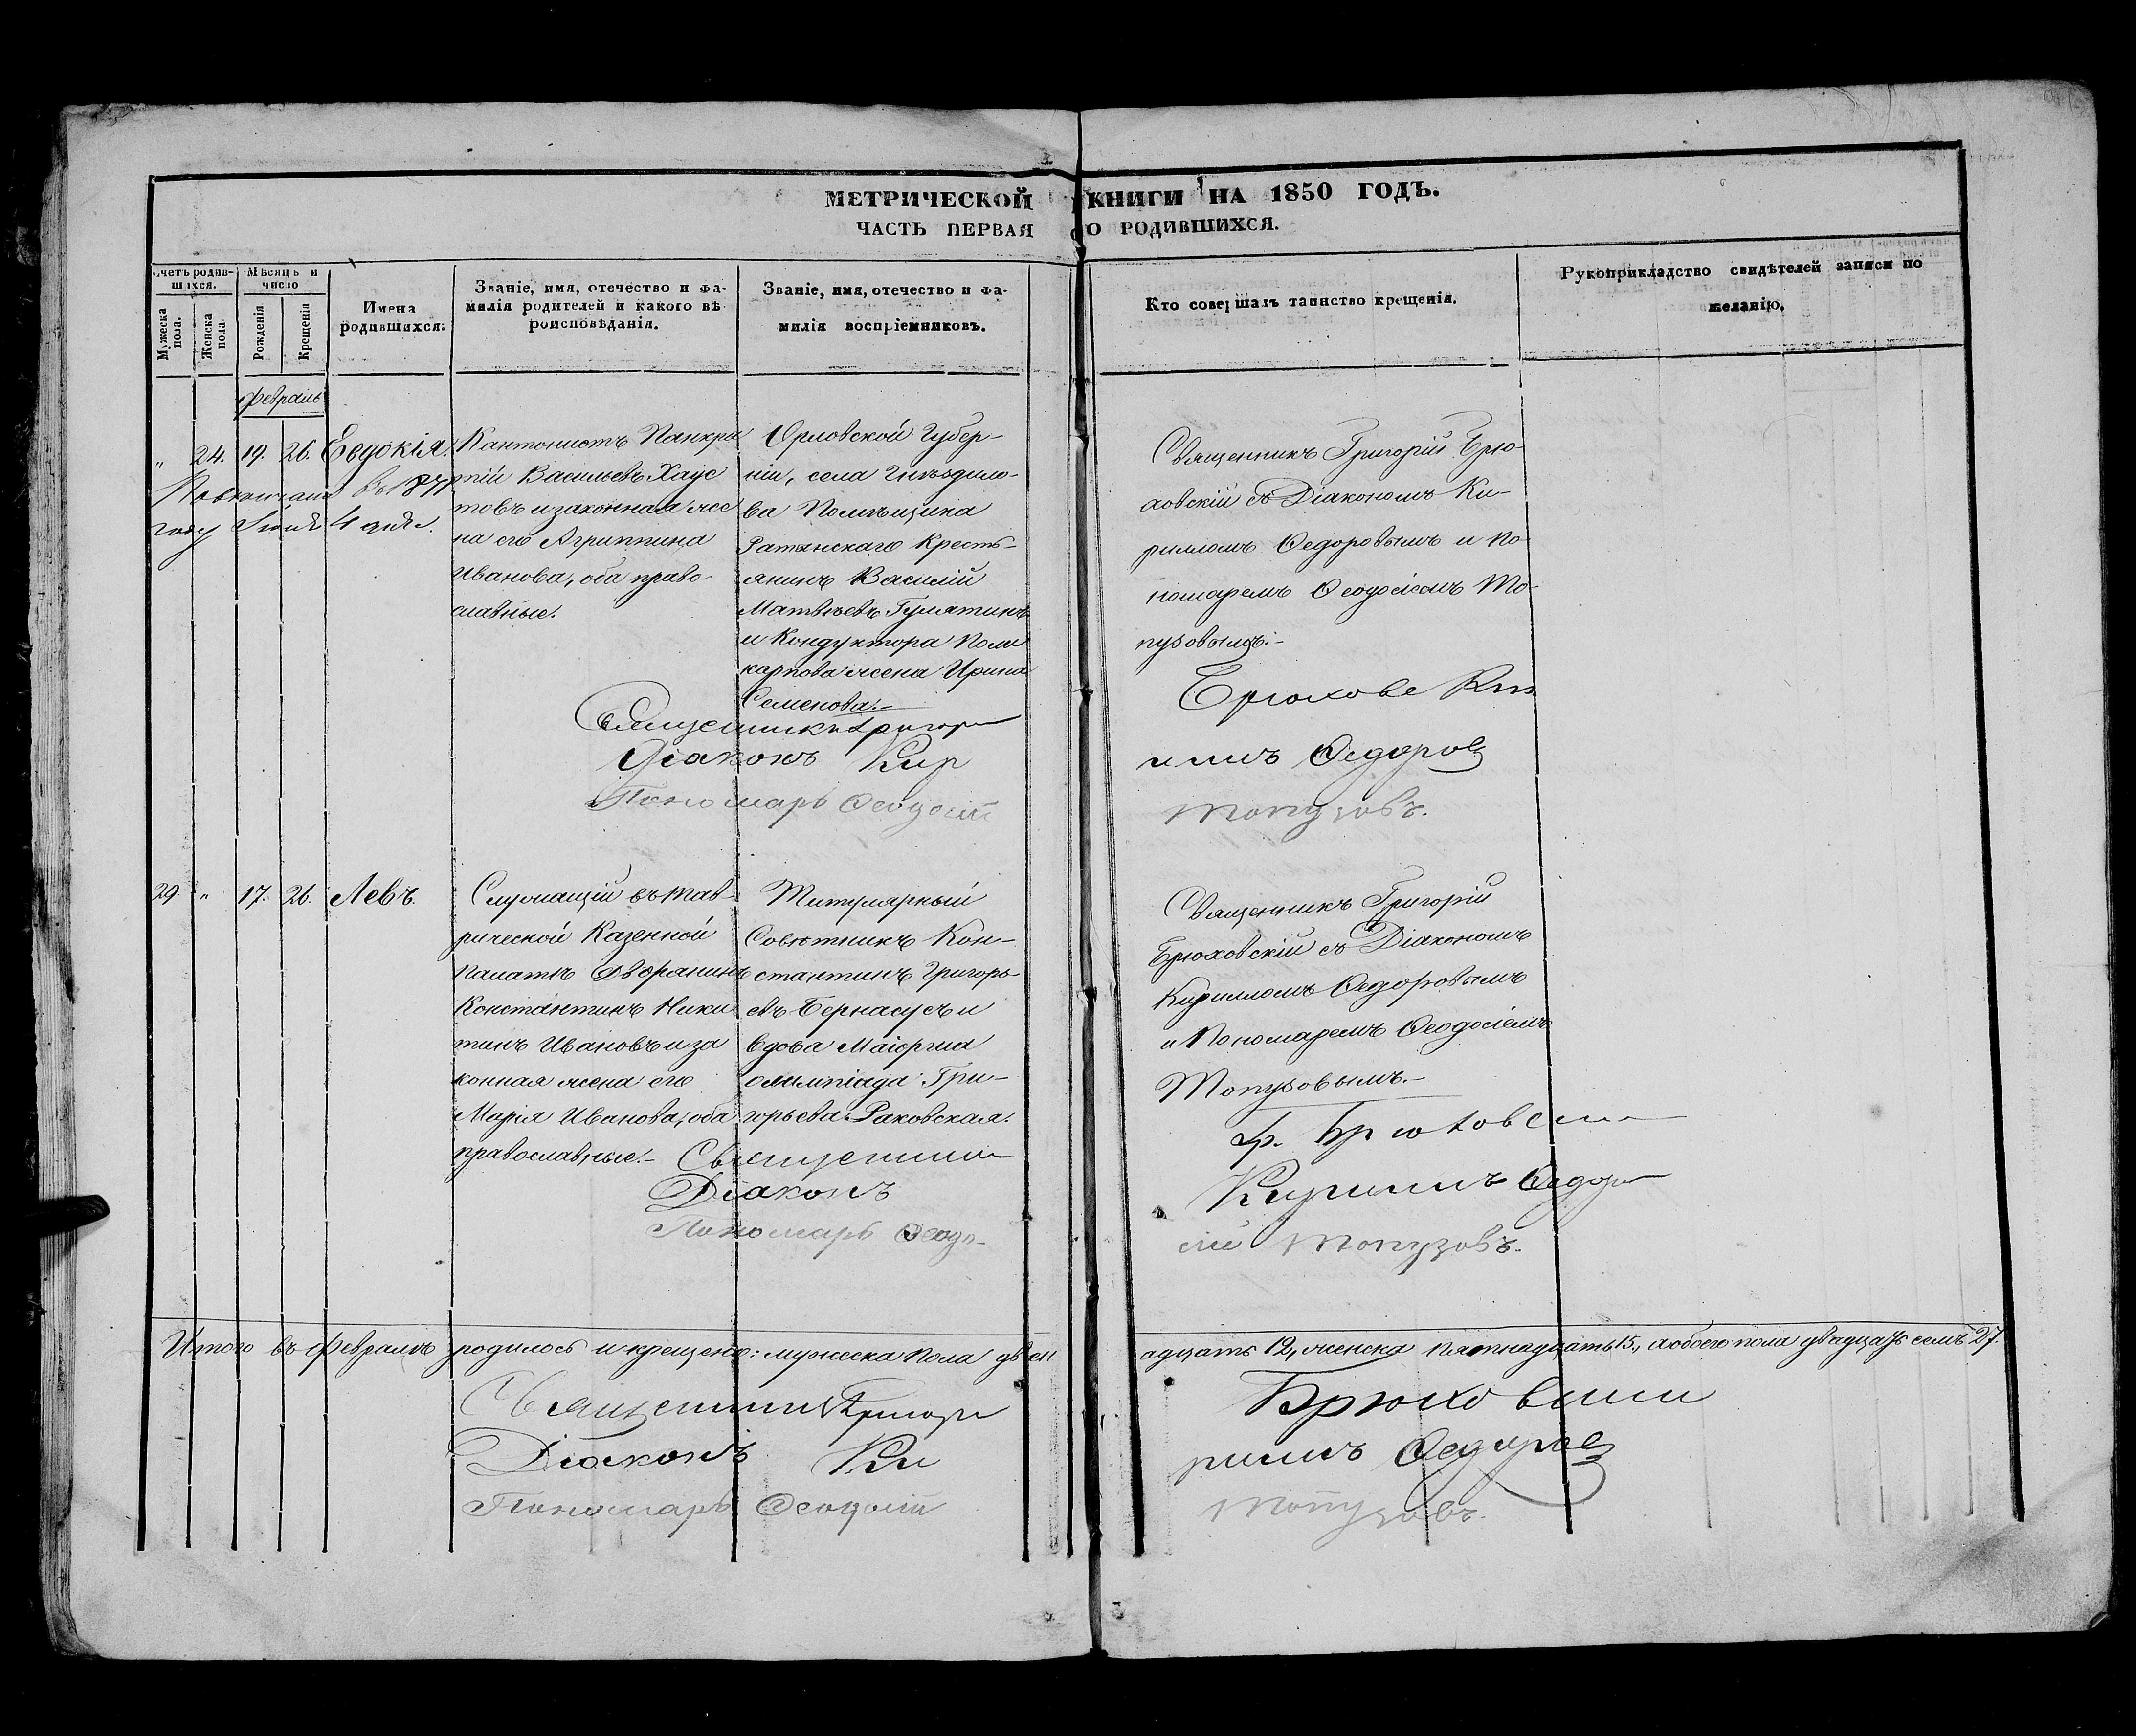 МЕТРИЧЕСКОЙ КНИГИ НА 1850 ГОДЪ.
ЧАСТЬ ПЕРВАЯ О РОДИВШИХСЯ.
Счетъ родив-
шихся.
Мужеска пола.
Женска пола.
Мѣсяцъ и
число
Рожденія
Крещенія
Имена
родившихся.
Званіе, имя, отечество и фа-
милія родителей и какого вѣ-
роисповѣданія.
Званіе, имя, отечество и фа-
милія воспріемниковъ.
Кто совершалъ таинство крещенія.
Рукоприкладство свидѣтелей записи по
желанію.
Февраль
" 24. 19. 26. Евдокія.
Повѣнчана въ 1871
году Іюля 4 дня.
Кантонистъ Панкра
тій Васильевъ Хаус
товъ и законная же
на его Агриппина
Иванова, оба право
славные.
Орловской Губер-
ніи, села Гнѣздило-
ва Помѣщика
Ратынскаго Кресть-
янинъ Василій
Матвѣевъ Гулятинъ
и Кондуктора Поли
карпова жена Ирина
Семенова.-
Священникъ Григорій Брю-
ховскій съ Діакономъ Ки-
рилломъ Ѳедоровымъ и По-
номаремъ Ѳеодосіемъ То-
пузовымъ.-
Священникъ Григори Брюховс
Діаконъ Кир иллъ Ѳедоровъ
Пономарь Ѳеодосій Топузовъ.
29. " 17. 26. Левъ.
Служащій въ Тав-
рической Казенной
Палатѣ Дворянинъ
Константинъ Ники
тинъ Ивановъ и за
конная жена его
Марія Иванова, оба
православные.-
Титулярный
Совѣтникъ Кон-
стантинъ Григорь-
евъ Бернасусъ и
вдова Маіорша
Олимпіада Гри-
горьева Раковская.
Священникъ Григорій
Брюховскій съ Діакономъ
Кирилломъ Ѳедоровымъ
и Пономаремъ Ѳеодосіемъ
Топузовымъ.-
Священник Гр. Брюховски
Діаконъ Кириллъ Ѳедоро
Пономарь Ѳеодо- сій Топузовъ.
Итого въ Февралѣ родилось и крещено: мужеска пола двѣн адцать 12, женска пятнадцать 15, а обоего пола двадцать семь 27.
Священник Григори Брюховски
Діаконъ Ки риллъ Ѳедоровъ
Пономарь Ѳеодосій Топузовъ.